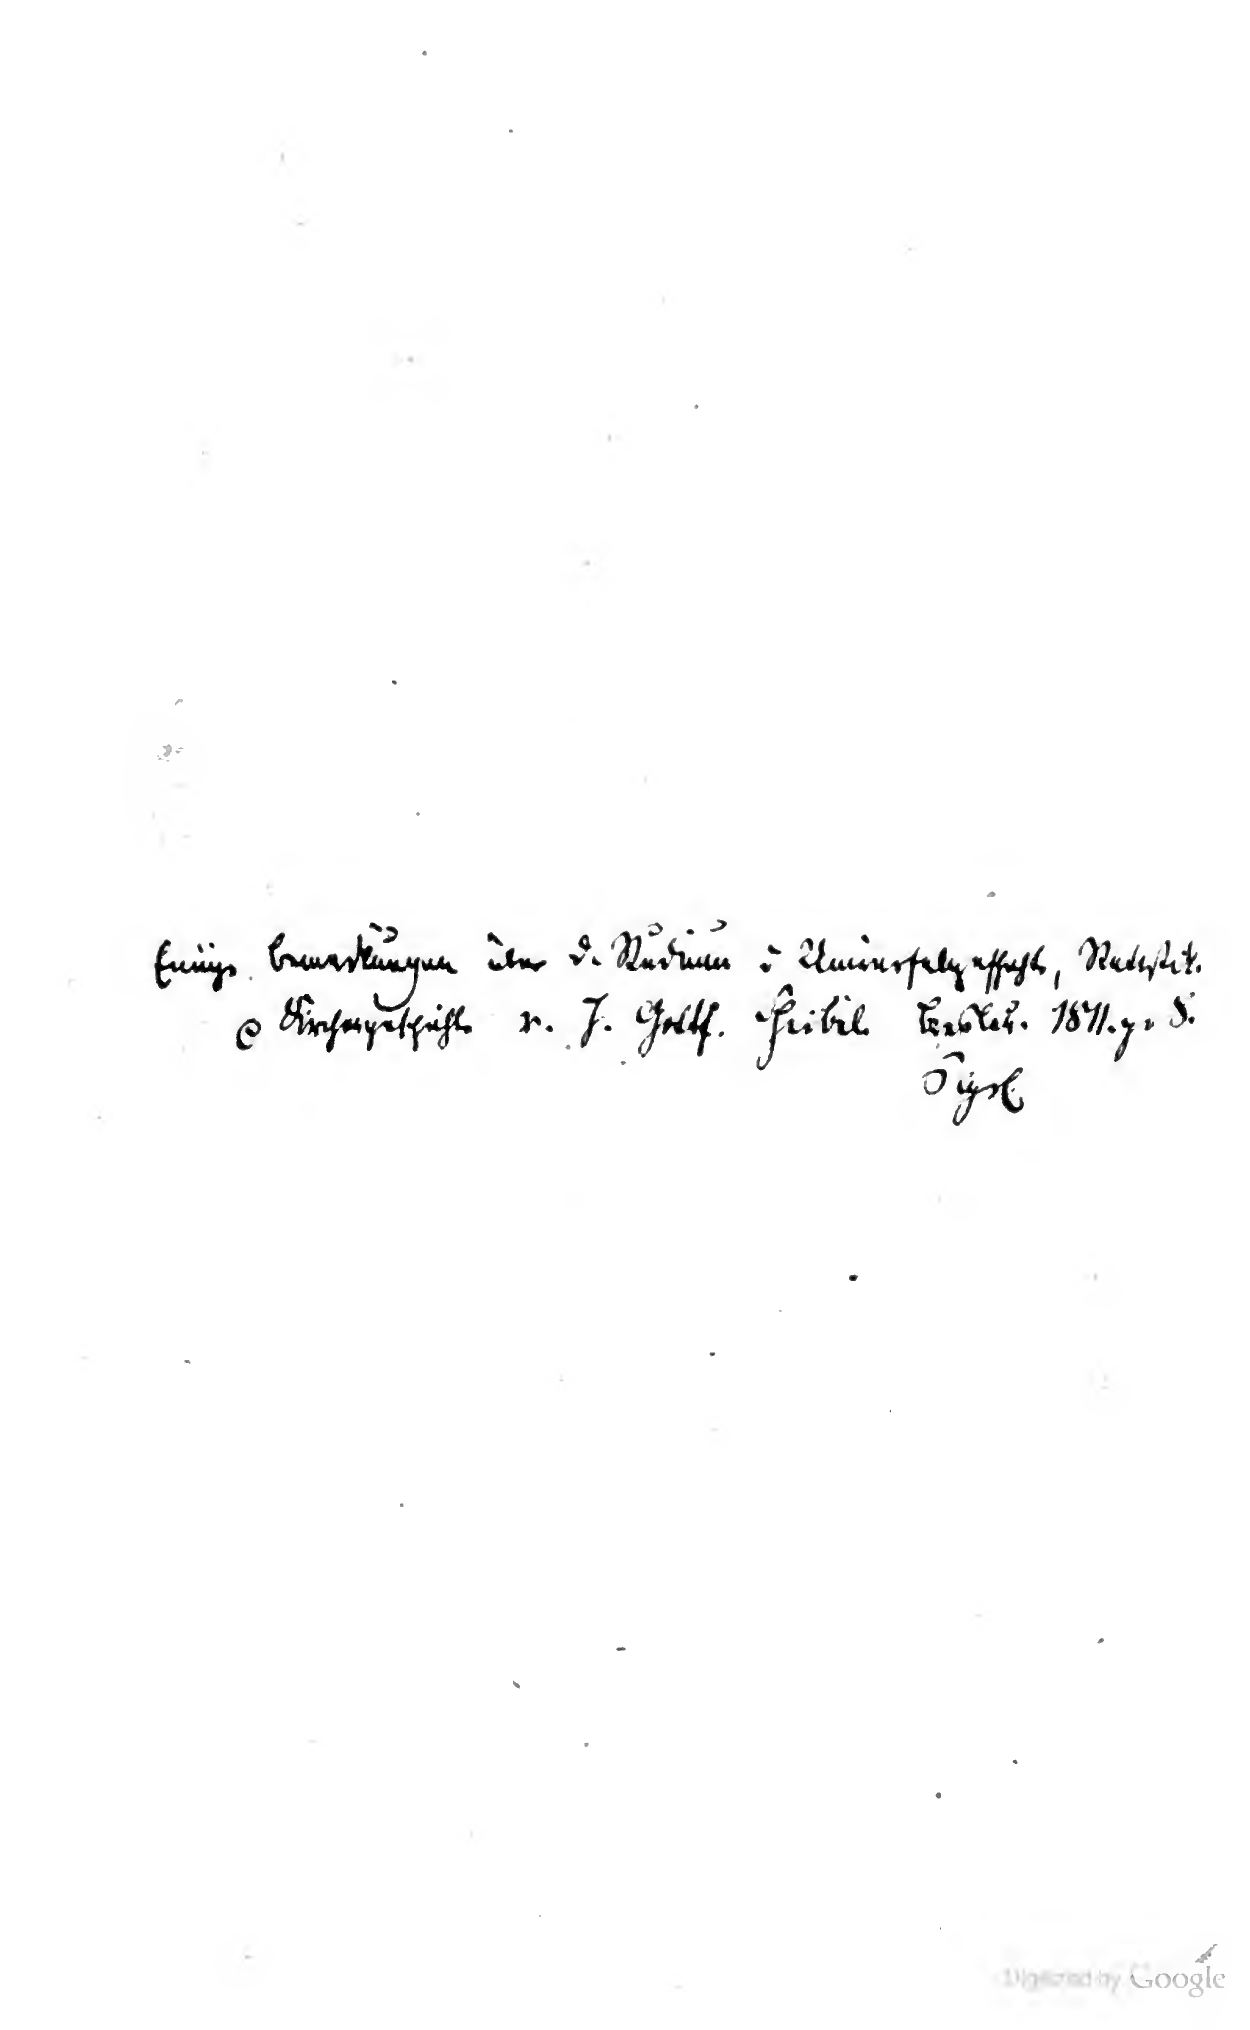 Einige Bemerkungen über d. Studium d. Universalgeschichte, Statistik.
& Kirchengeschichte v. J. Gottf. Scheibel. Breslau. 1811. 8.
Digitized by Google